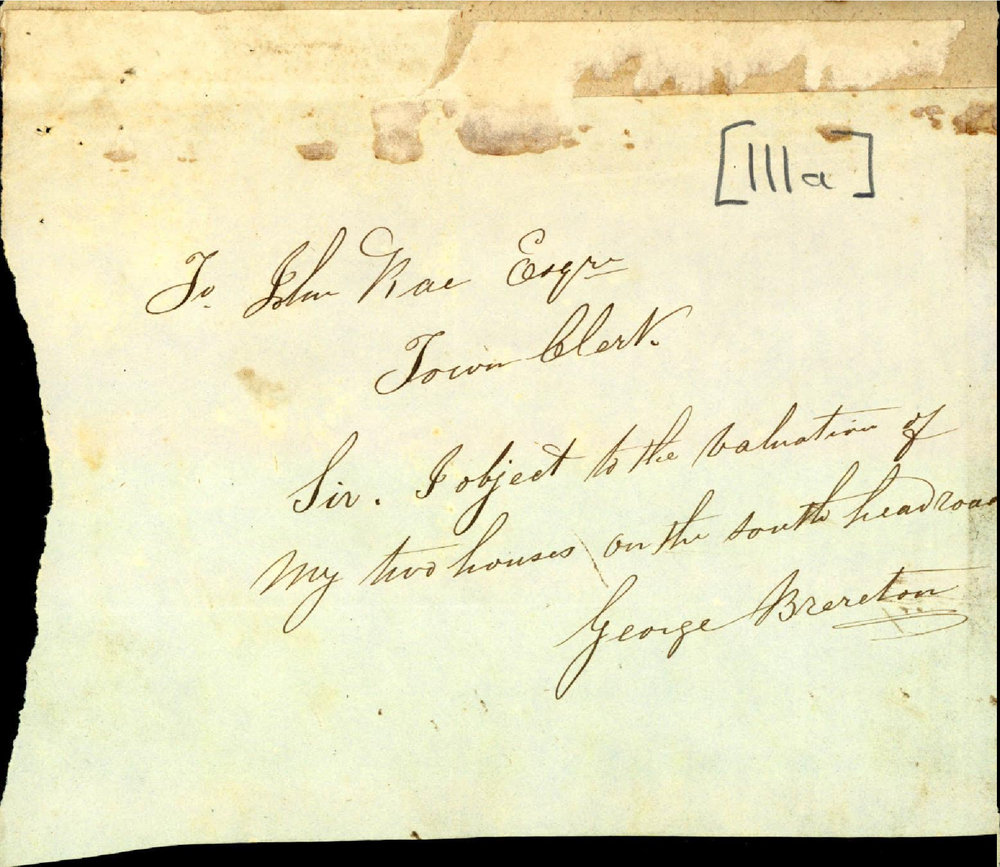 [111a]
To John Rae Esqre
Town Clerk.
Sir. I object to the valuation of
my two houses on the south head road
George Brereton